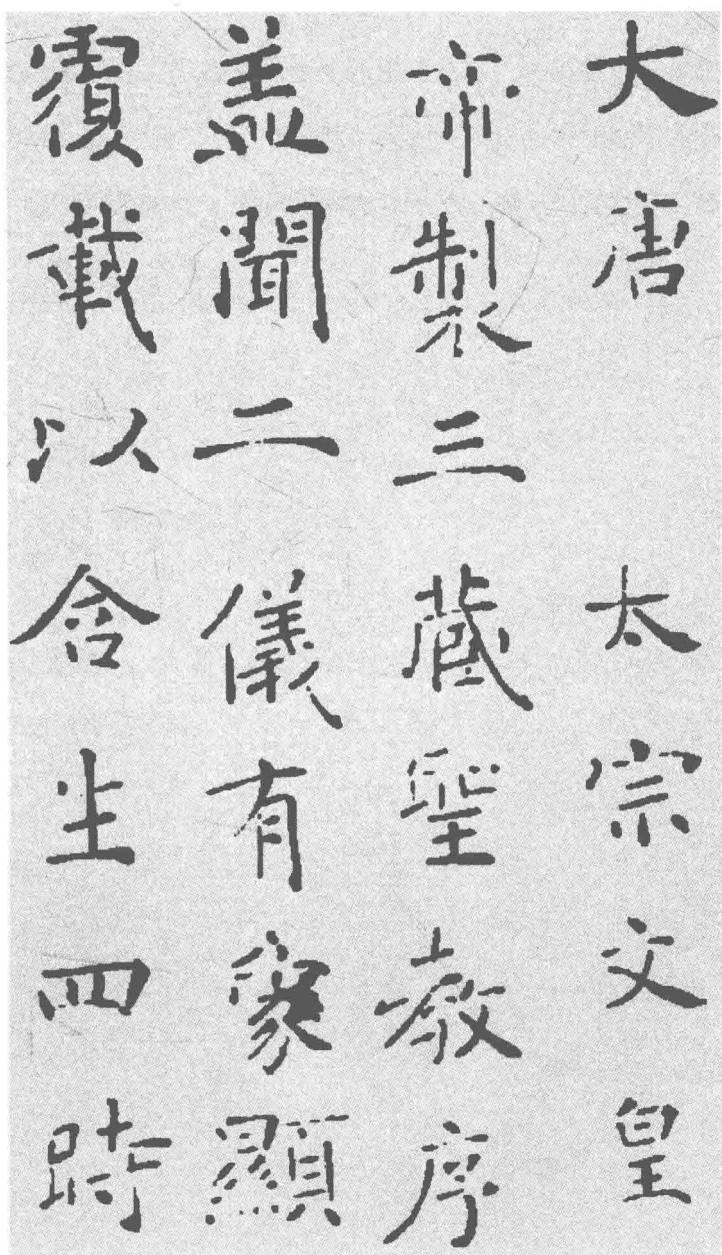 大唐　太宗文皇
帝製三藏聖教序
盖聞二儀有象顯
覆載以含生四時